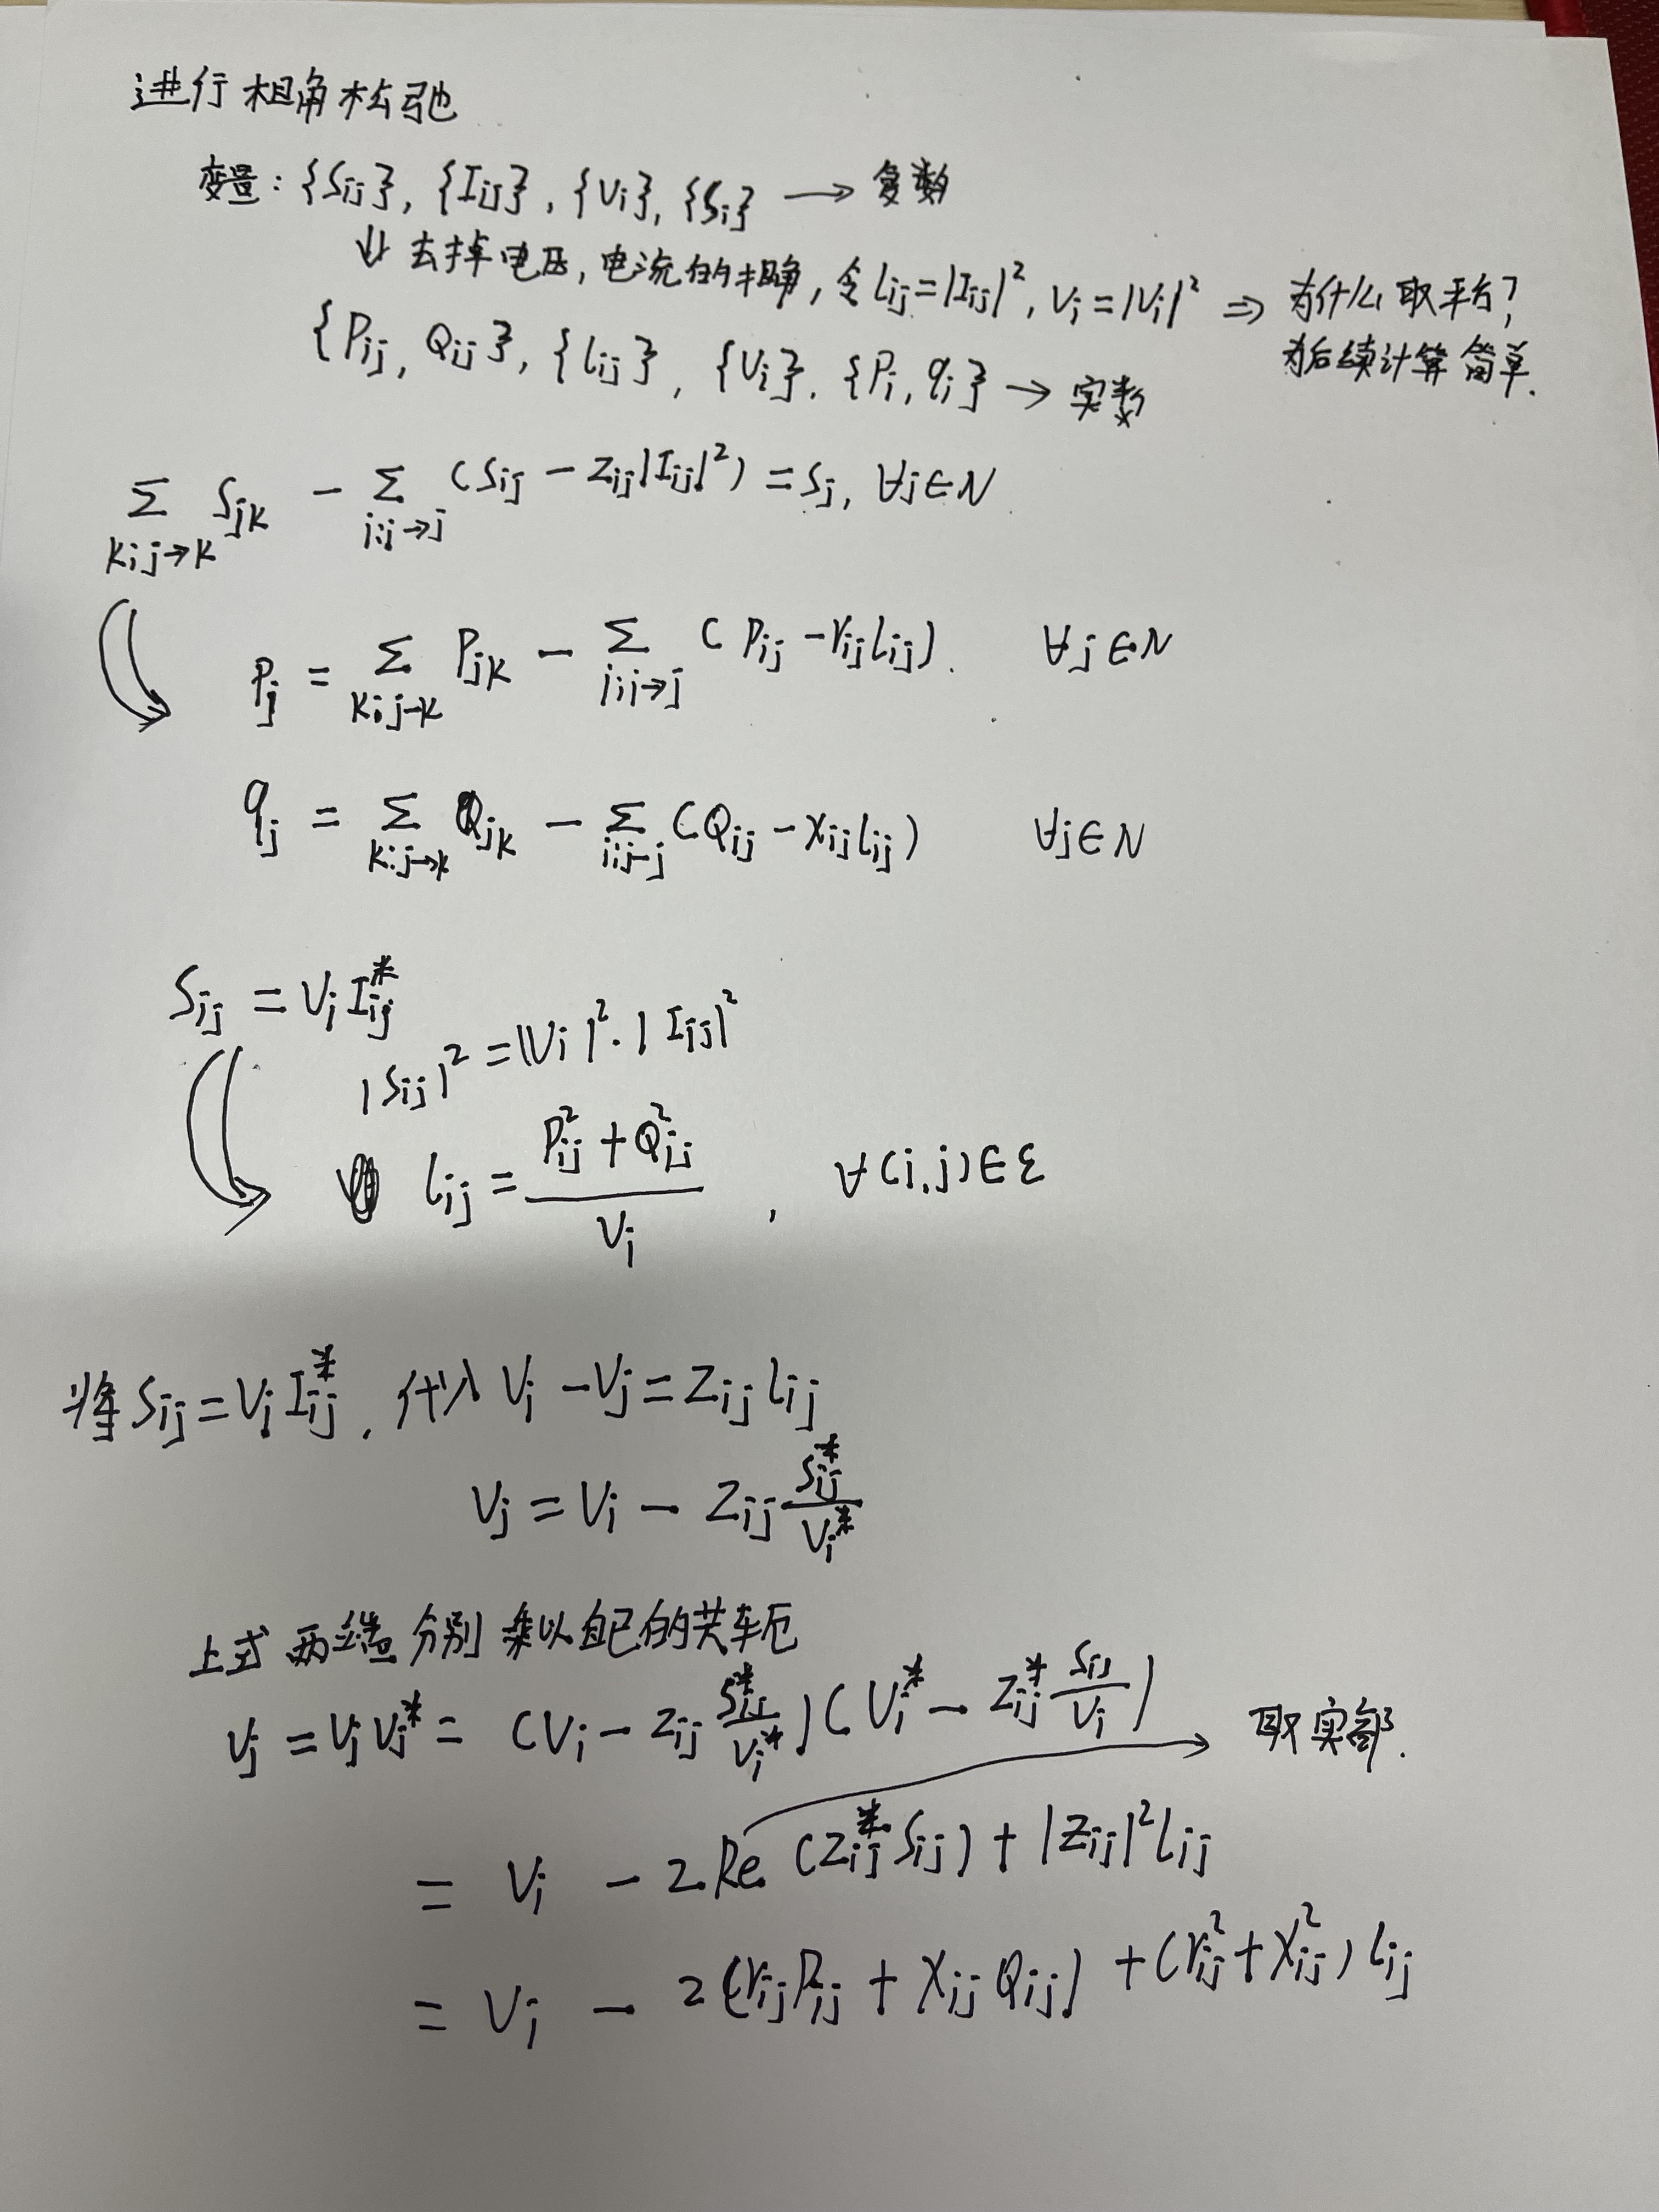 进行相角松弛
变量：{Sij}, {Iij}, {Vi}, {Si} → 复数
⇓ 去掉电压，电流的相角，令 lij=|Iij|², vi=|Vi|² ⇒ 为什么取平方？
为后续计算简单.
{Pij, Qij}, {lij}, {Vi}. {Pi, qi} → 实数
Σ_{k:j→k} Sjk - Σ_{i:i→j} (Sij - Zij|Iij|²) = Sj, ∀j∈N
Pj = Σ_{k:j→k} Pjk - Σ_{i:i→j} (Pij - rijlij). ∀j∈N
qj = Σ_{k:j→k} Qjk - Σ_{i:i→j} (Qij - xijlij) ∀j∈N
Sij = Vi Iij*
|Sij|² = |Vi|²·|Iij|²
lij = (Pij² + Qij²) / Vi , ∀(i,j)∈ε
将 Sij=Vi Iij*, 代入 Vi - Vj = Zij lij
Vj = Vi - Zij Sij*/Vi*
上式两端分别乘以自己的共轭
vj = VjVj* = (Vi - Zij Sij*/Vi*)(Vi* - Zij* Sij/Vi) → 取实部.
= Vi - 2Re(Zij* Sij) + |Zij|² lij
= Vi - 2(rijPij + xijQij) + (rij² + xij²) lij